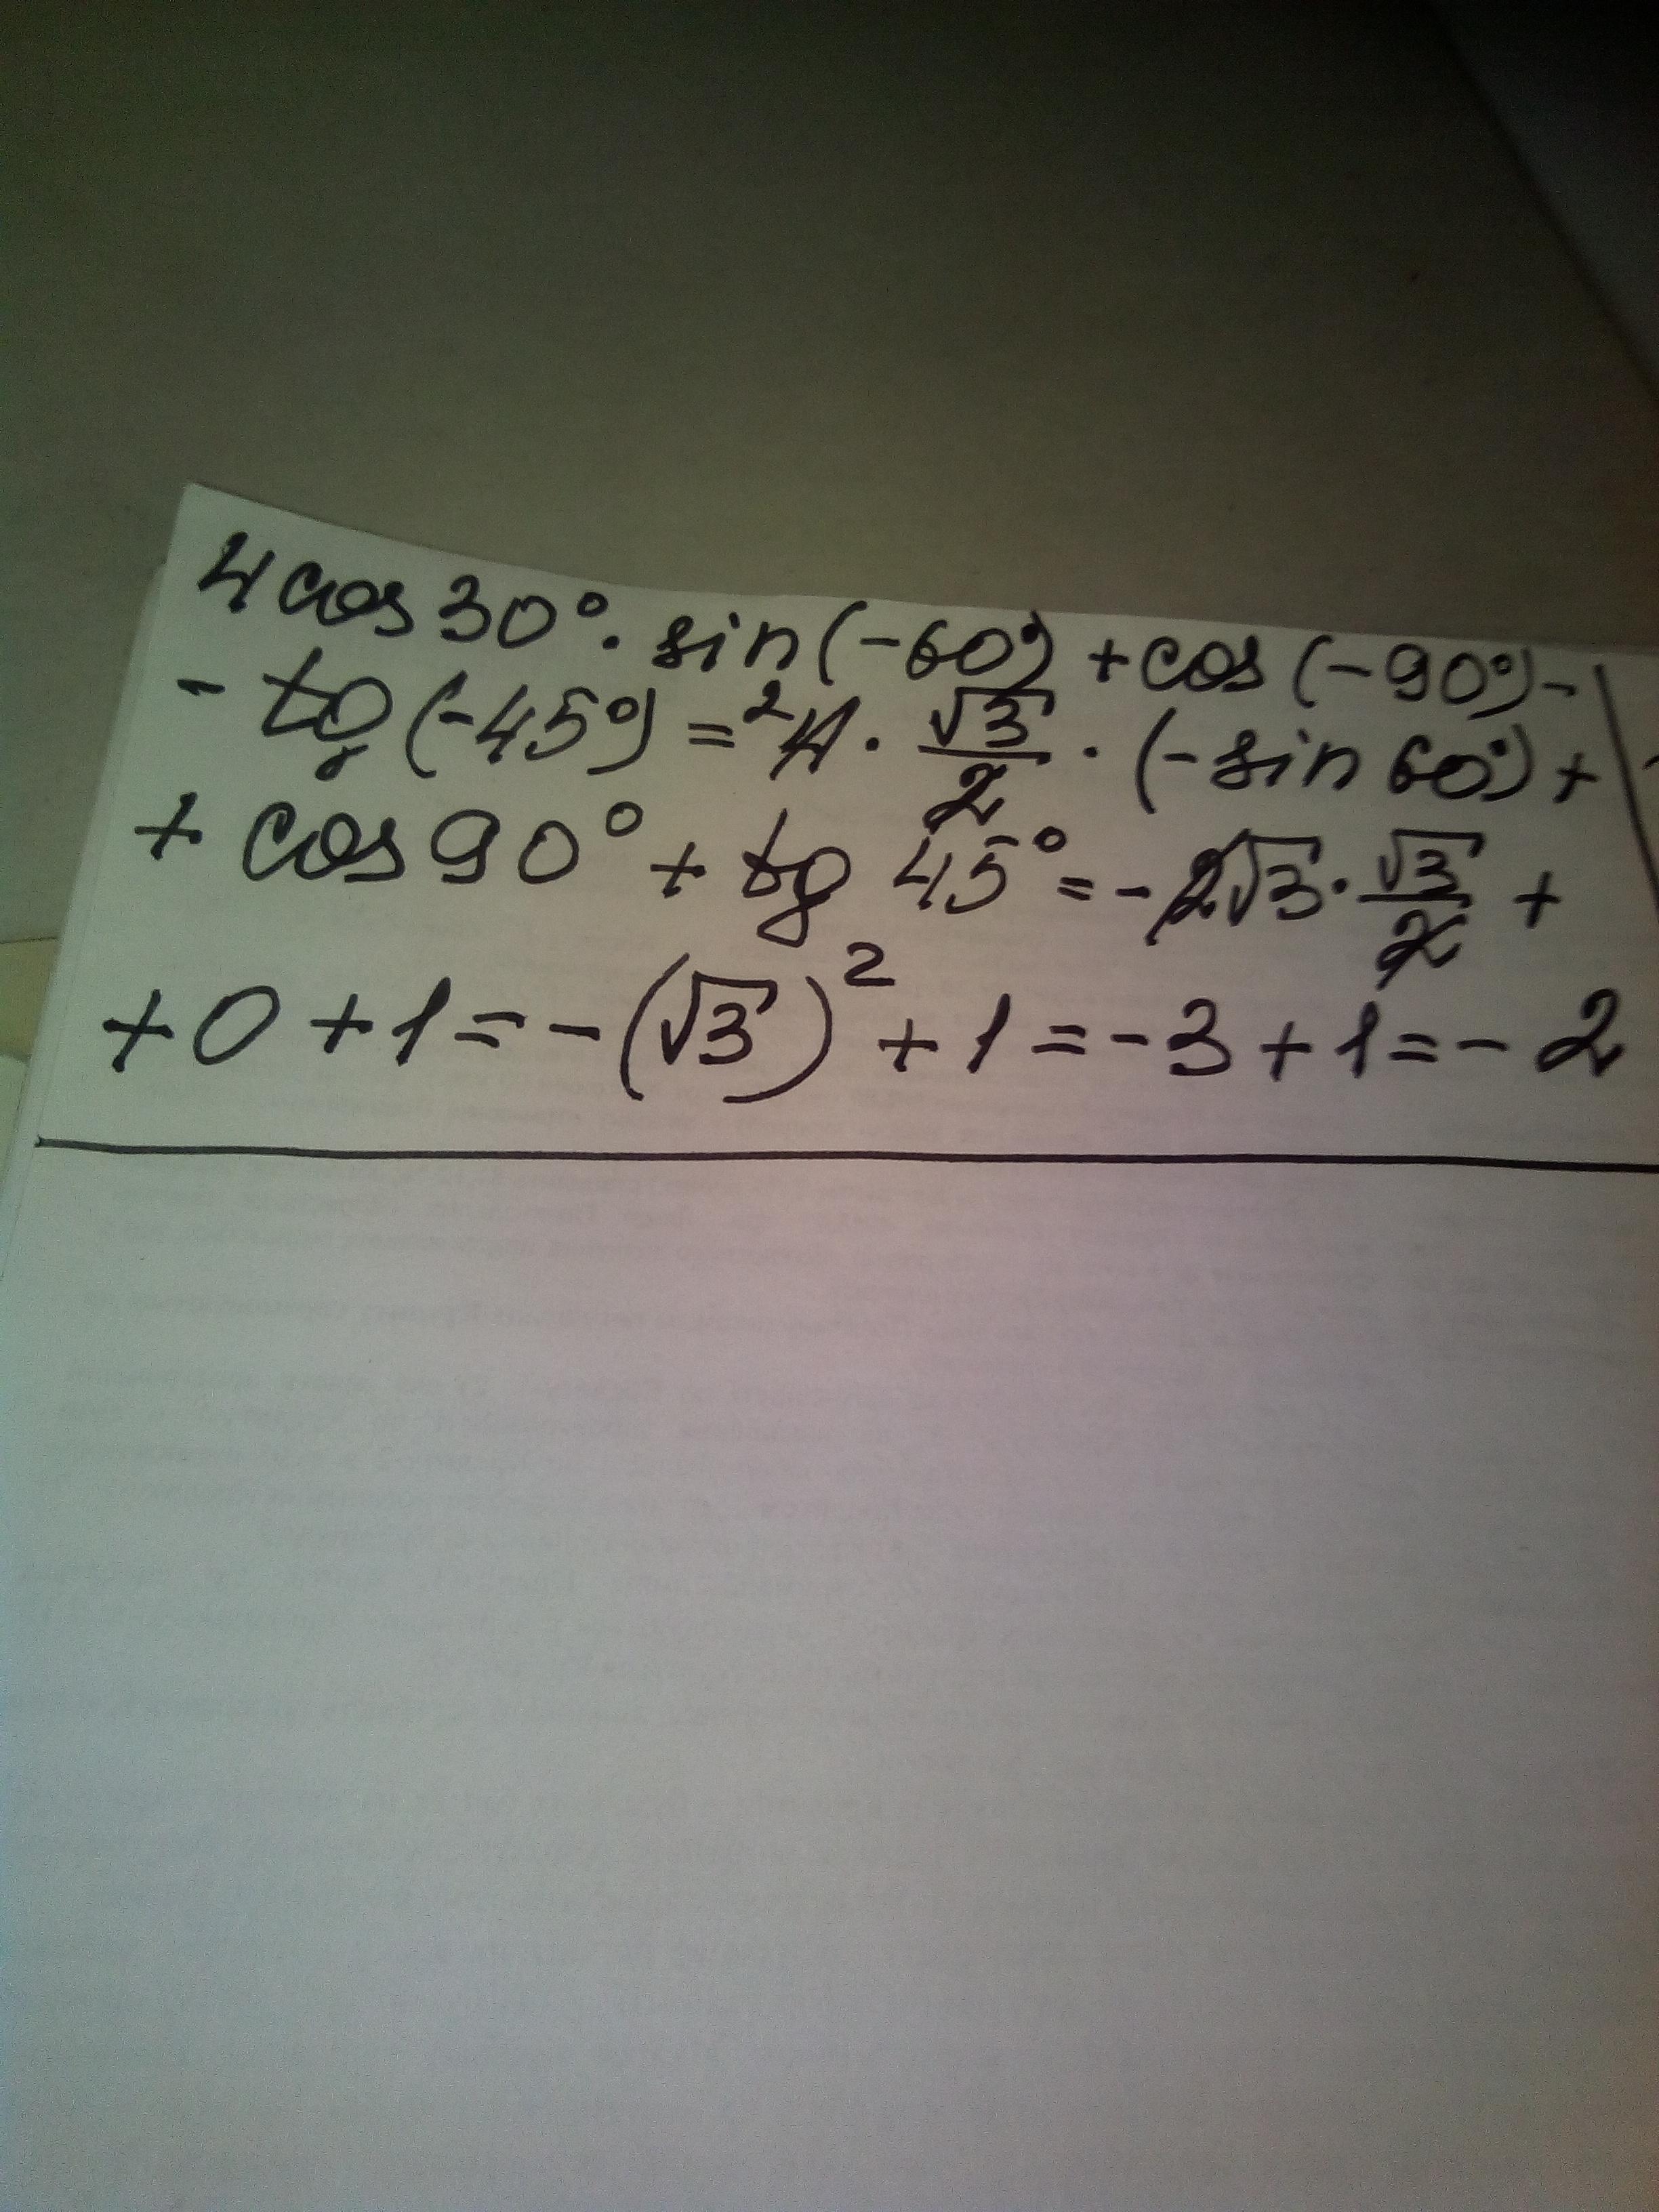 4cos30°·sin(-60°)+cos(-90°)-
-tg(-45°)=²4·√3/2·(-sin60°)+
+cos90°+tg45°=-2√3·√3/2+
+0+1=-(√3)²+1=-3+1=-2